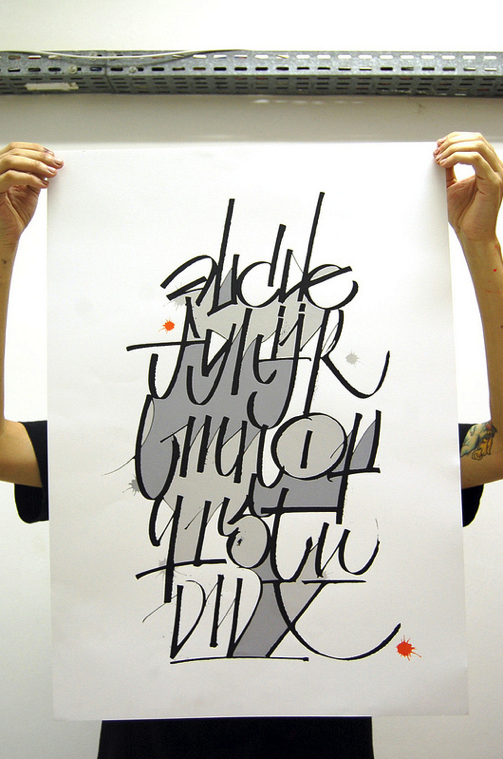 abcde
fghijk
lmnop
qrstu